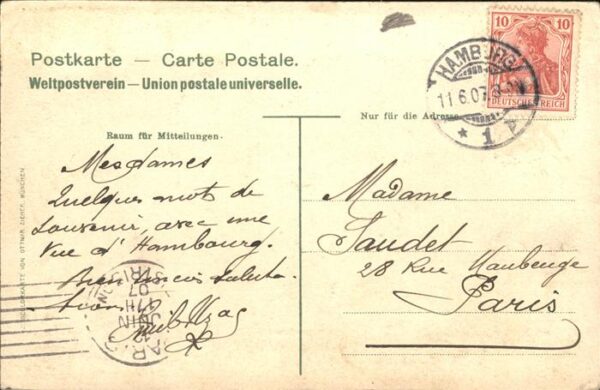 Postkarte — Carte Postale.
Weltpostverein — Union postale universelle.
Raum für Mitteilungen.
Nur für die Adresse
10 10
DEUTSCHES REICH
HAMBURG
11.6.07.
* 1
Mesdames
Quelques mots de
souvenir, avec une
vue d'Hambourg.
Bien sincères saluta-
tions
Madame
Saudet
28 Rue Maubeuge
Paris
PAR
JUIN
07
VON OTTMAR ZIEHER, MÜNCHEN